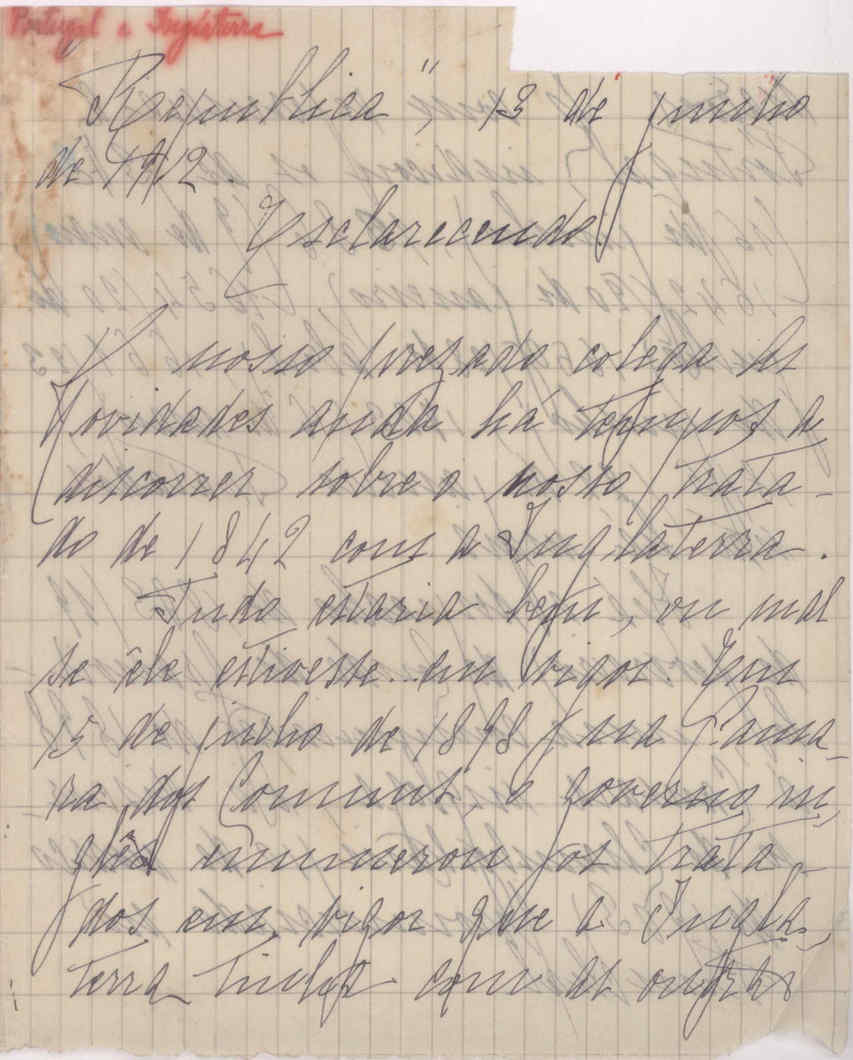 Portugal e Inglaterra
Republica", 13 de junho
de 1912.
Esclarecendo.
O nosso prezado colega As
Novidades anda há tempos a
discorrer sobre o nosso trata-
do de 1842 com a Inglaterra.
Tudo estaria bem, ou mal
se êle estivesse... em vigor. Em
15 de junho de 1898, na Cama-
ra dos Comuns, o governo in-
glês enumerou os trata-
dos em vigor que a Ingla-
terra tinha com as outras